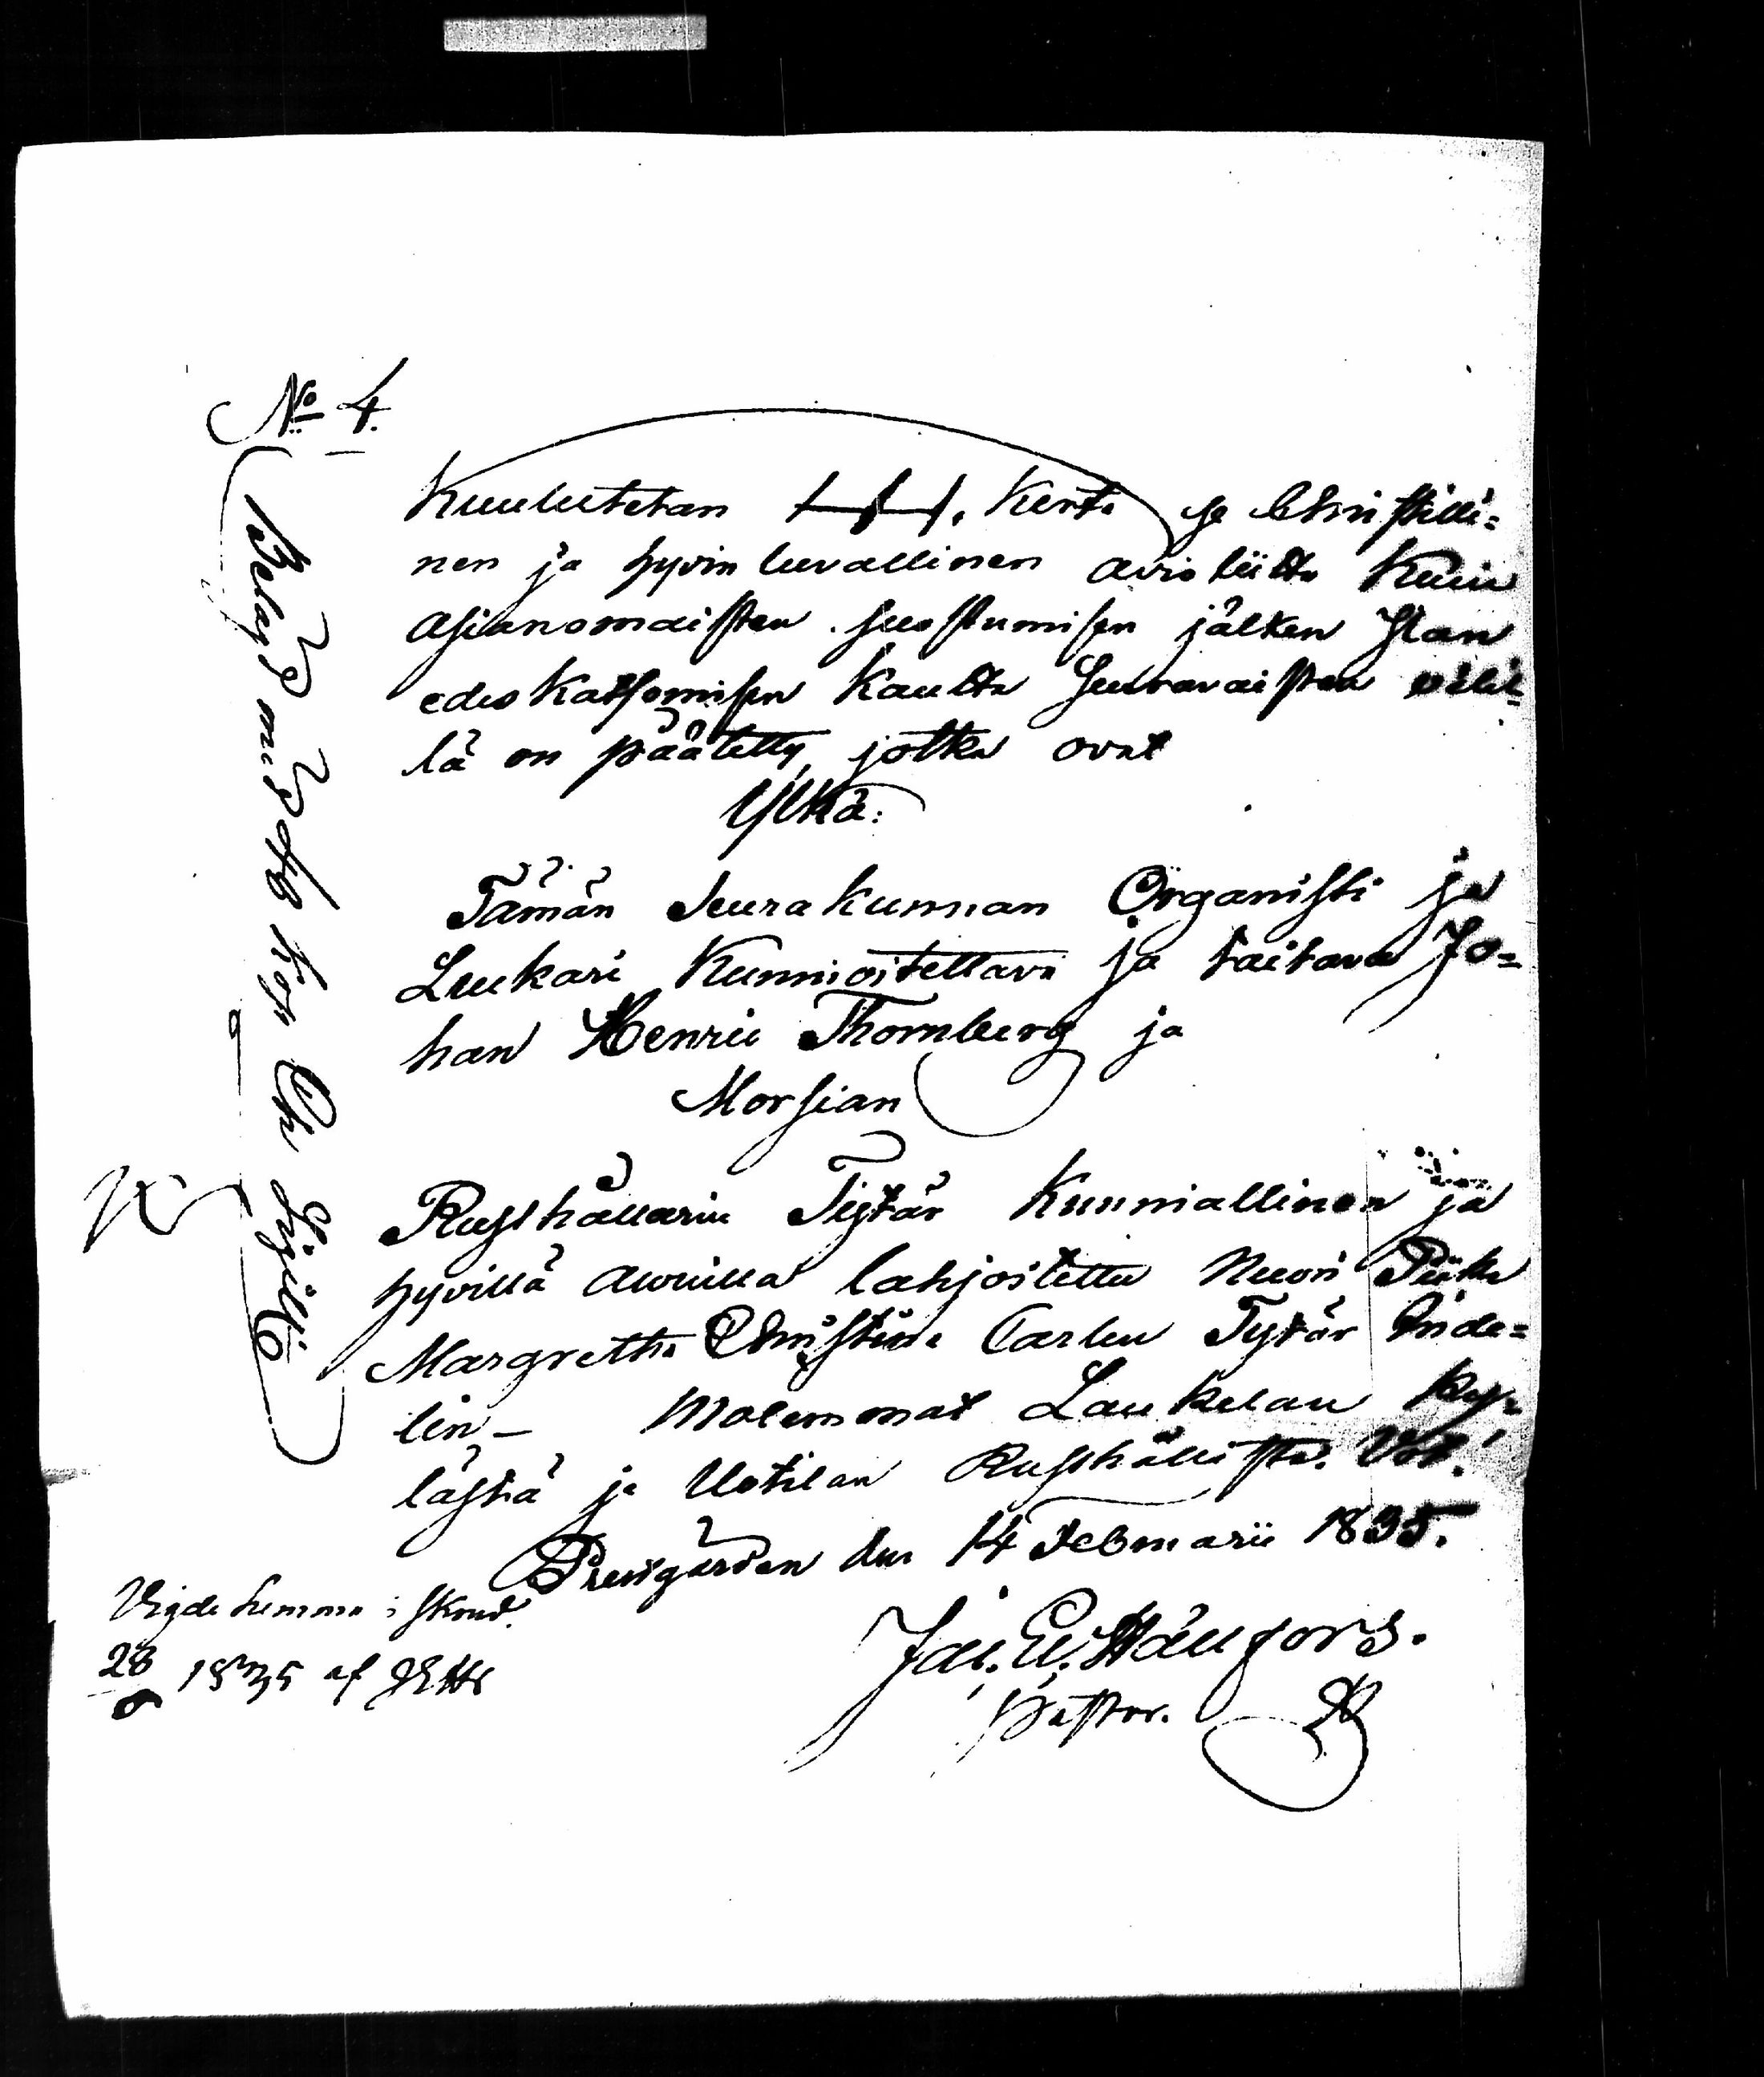 No 4.
Kuulutetan 1. 1. 1. Kerta se Christilli=
nen ja hyvin luvallinen avioliitto Kuin
asianomaisten suostumisen jälken Ilan
edeskatsomisen Kautta Seuravaisten välil=
lä on päätetty, jotka ovat
Ylkä:
Tämän Seurakunnan Organisti ja
Luckari Kunnioitettava ja taitava Jo=
han Henric Thornberg ja
Morsian
Rusthållarin Tytär Kunniallinen ja
hyvillä avuilla lahjoitettu Nuori Piika
Margretha Christina Carlin Tytär
lin – Molemmat Laukelan Ky=
lästä ja Uotilan Rusthållista.
Prestgården den 14 Februarii 1835.
Jac. E. Hällfors.
Pastor.
Vigde hemma i
28 1835 af JEHs
Belagd med 48 kop. Sigill